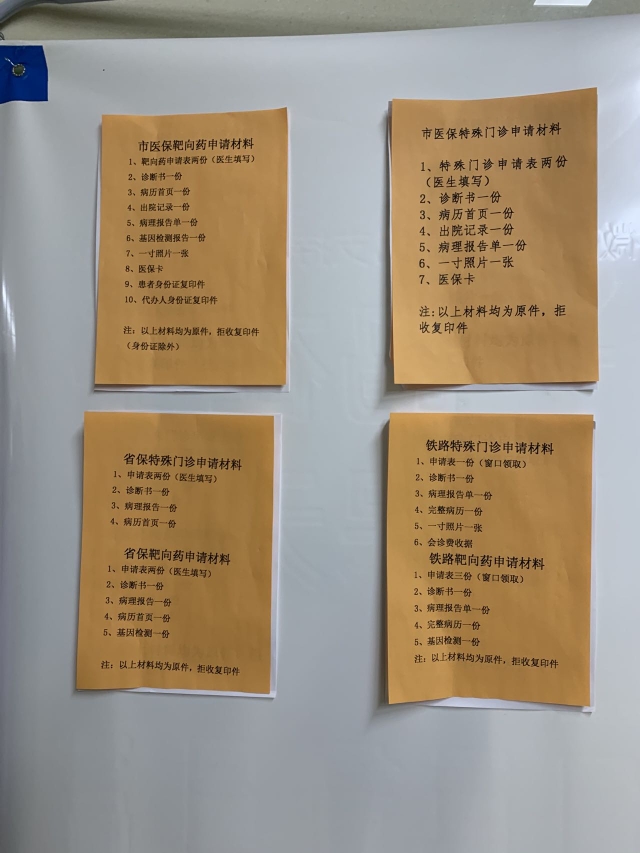 市医保靶向药申请材料
1、靶向药申请表两份（医生填写）
2、诊断书一份
3、病历首页一份
4、出院记录一份
5、病理报告单一份
6、基因检测报告一份
7、一寸照片一张
8、医保卡
9、患者身份证复印件
10、代办人身份证复印件
注：以上材料均为原件，拒收复印件
（身份证除外）
市医保特殊门诊申请材料
1、特殊门诊申请表两份
（医生填写）
2、诊断书一份
3、病历首页一份
4、出院记录一份
5、病理报告单一份
6、一寸照片一张
7、医保卡
注：以上材料均为原件，拒
收复印件
省保特殊门诊申请材料
1、申请表两份（医生填写）
2、诊断书一份
3、病理报告一份
4、病历首页一份
省保靶向药申请材料
1、申请表两份（医生填写）
2、诊断书一份
3、病理报告一份
4、病历首页一份
5、基因检测一份
注：以上材料均为原件，拒收复印件
铁路特殊门诊申请材料
1、申请表一份（窗口领取）
2、诊断书一份
3、病理报告单一份
4、完整病历一份
5、一寸照片一张
6、会诊费收据
铁路靶向药申请材料
1、申请表三份（窗口领取）
2、诊断书一份
3、病理报告单一份
4、完整病历一份
5、基因检测一份
注：以上材料均为原件，拒收复印件